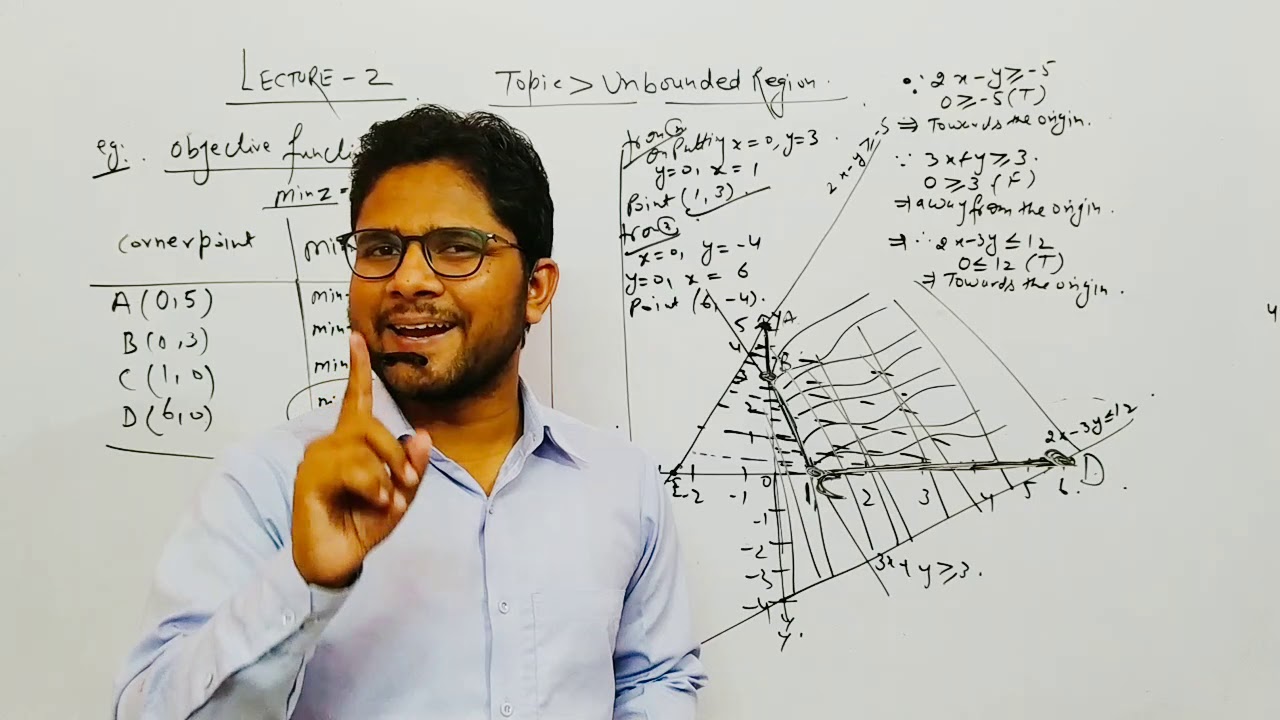 LECTURE - 2
Topic > Unbounded Region.
eg: objective functi
min z =
corner point
min
A (0,5)
min-
B (0,3)
min-
C (1,0)
min-
D (6,0)
from ①
on Putting x = 0, y = 3
y = 0, x = 1
Point (1,3).
from ②
x = 0, y = -4
y = 0, x = 6
Point (6,-4).
∵ 2x - y ≥ -5
0 ≥ -5 (T)
⇒ Towards the origin.
∵ 3x + y ≥ 3.
0 ≥ 3 (F)
⇒ away from the origin.
⇒ ∵ 2x - 3y ≤ 12
0 ≤ 12 (T)
⇒ Towards the origin.
2x - y ≥ -5
5 y A
4
B
3
2
2x - 3y ≤ 12
E -2 -1 0 1 C 2 3 4 5 6 D
-1
-2
-3
-4
3x + y ≥ 3.
y
4